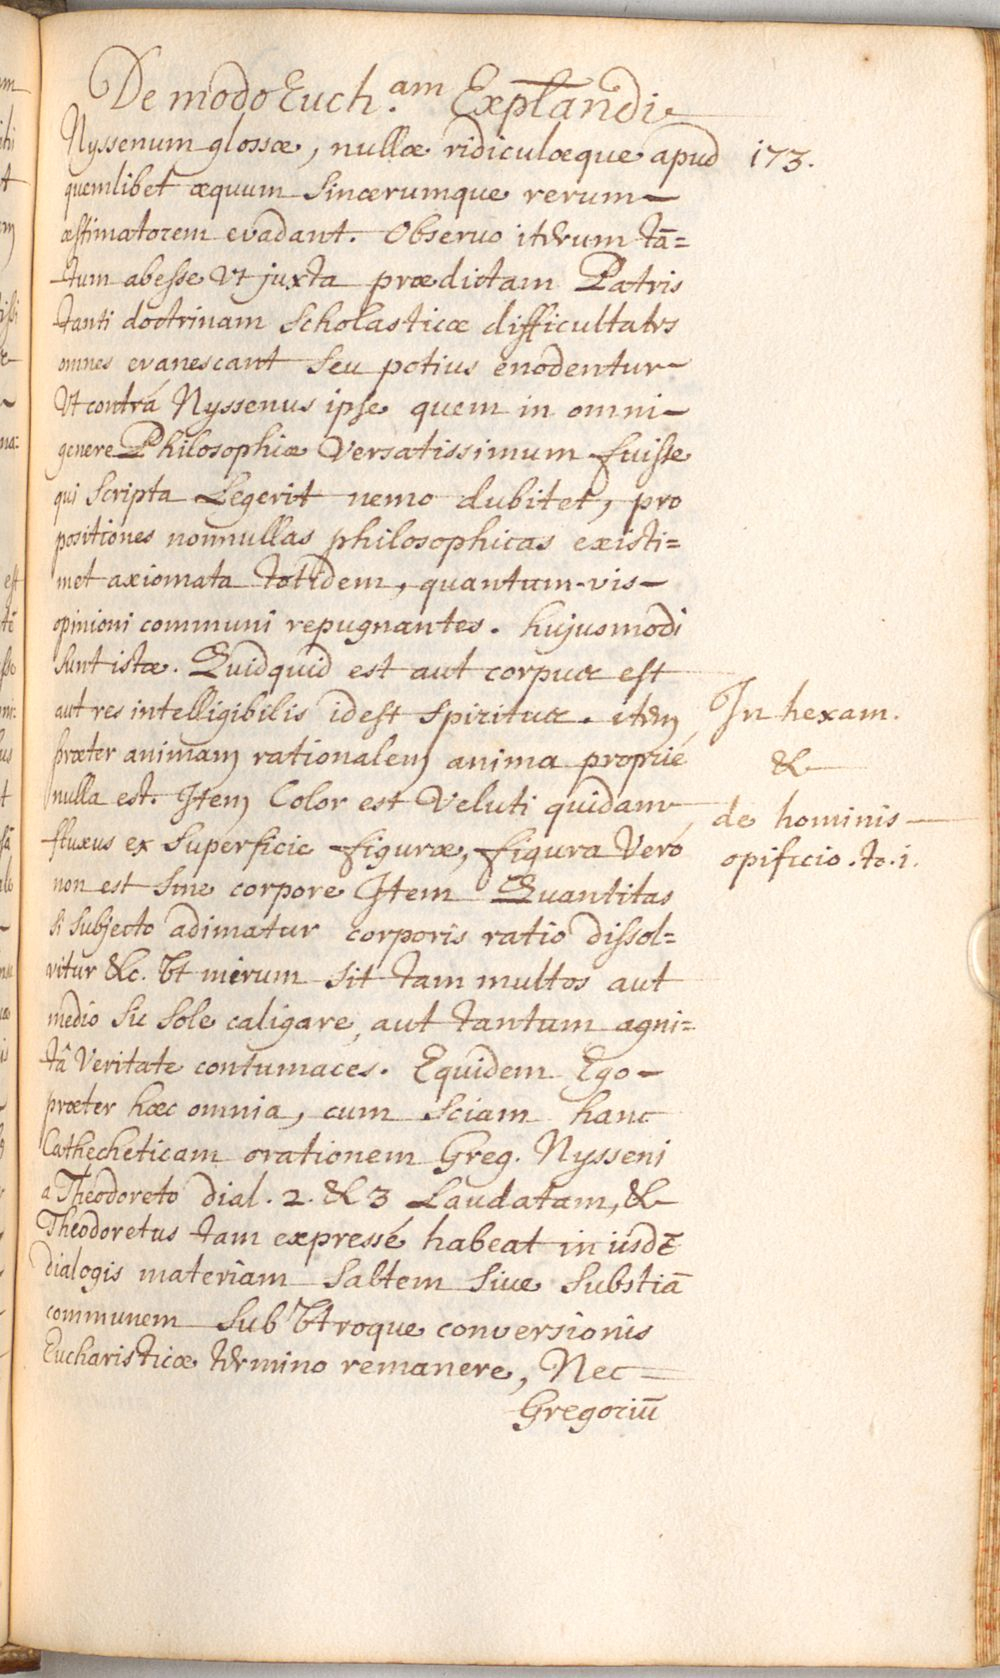 De modo Euch.am Explandi
Nyssenum glossæ, nullæ ridiculæque apud 173.
quemlibet æquum sincærumque rerum
æstimatorem evadant. Observo iterum tā=
tum abesse Vt juxta prædictam Patris
tanti doctrinam Scholasticæ difficultates
omnes evanescant seu potius enodentur
Vt contrá Nyssenus ipse quem in omni
genere Philosophiæ Versatissimum fuisse
qui Scripta Legerit nemo dubitet, pro
positiones nonnullas philosophicas existi=
met axiomata totidem, quantum-vis
opinioni communi repugnantes. hujusmodi
sunt istæ. Quidquid est aut corpus est
aut res intelligibilis idest spiritus. item
præter animam rationalem anima proprié
nulla est. Item Color est Veluti quidam
fluxus ex Superficie figuræ, figura Veró
non est sine corpore Item Quantitas
si subjecto adimatur corporis ratio dissol=
vitur &c. Vt mirum sit tam multos aut
medio sic sole caligare, aut tantum agni=
tâ Veritate contumaces. Equidem Ego
præter hæc omnia, cum Sciam hanc
Cathecheticam orationem Greg. Nysseni
a Theodoreto dial. 2. & 3 Laudatam, &
Theodoretus tam expressé habeat in iisdē
dialogis materiam saltem sive substiā
communem sub Vtroque conversionis
Eucharisticæ termino remanere, Nec
Gregoriū
In hexam.
&
de hominis
opificio. to. i.